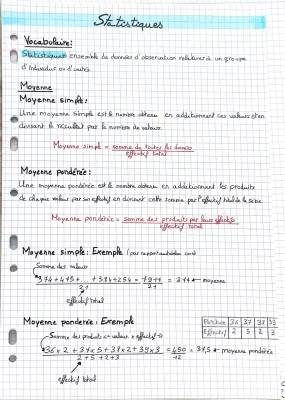 Statistiques
Vocabulaire:
Statistiques: ensemble de données d'observation relatives à un groupe
d'individus ou d'unités
Moyenne
Moyenne simple:
Une moyenne simple est le nombre obtenu en additionnant ces valeurs et en
divisant le résultat par le nombre de valeurs.
Moyenne simple = somme de toutes les données
effectif total
Moyenne pondérée:
Une moyenne pondérée est le nombre obtenu en additionnant les produits
de chaque valeur par son effectif en divisant cette somme par l'effectif total de la série
Moyenne pondérée = somme des produits par leurs effectifs
effectif total
Moyenne simple: Exemple
Somme des valeurs
= moyenne
21 21
effectif total
Moyenne pondérée: Exemple
Pointure 36 37 38 39
Effectif 2 5 2 3
Somme des produits valeurs × effectif
36×2 + 37×5 + 38×2 + 39×3 = 450 = 37,5 moyenne pondérée
2+5+2+3 12
effectif total